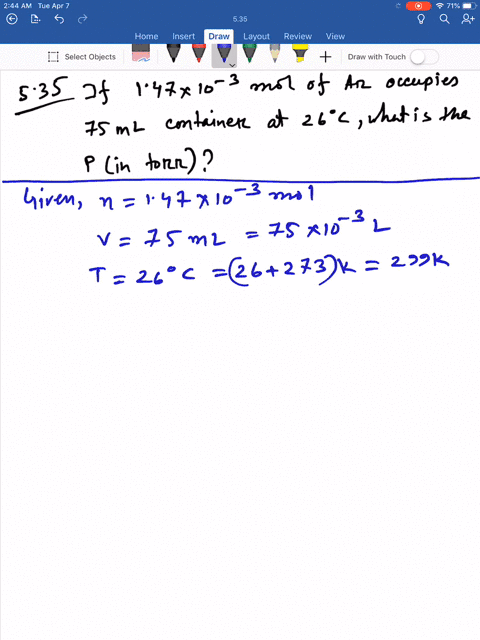 2:44 AM Tue Apr 7
71%
5.35
Home Insert Draw Layout Review View
Select Objects
Draw with Touch
5.35 If 1.47×10⁻³ mol of Ar occupies
75 mL container at 26°C, what is the
P (in torr)?
Given, n = 1.47×10⁻³ mol
V = 75 mL = 75×10⁻³ L
T = 26°C = (26+273)K = 299K